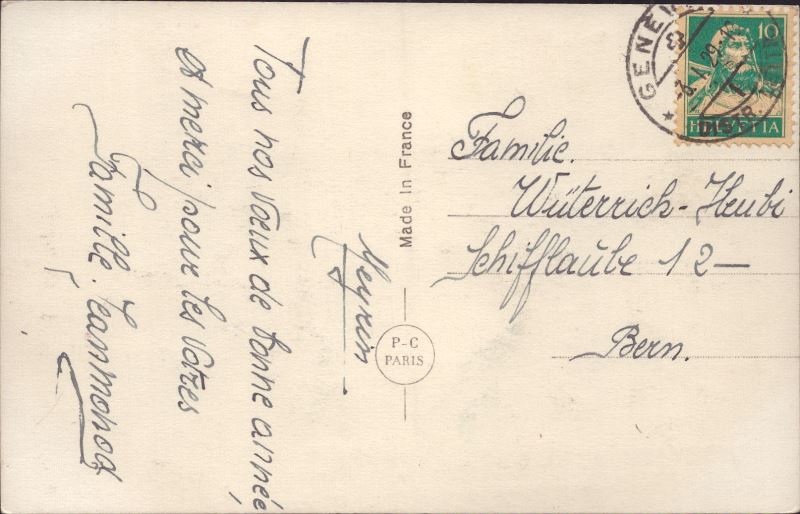 Tous nos vœux de bonne année,
et merci pour les vôtres
Famille Jeanmonod
Meyrin
Made In France
P-C
PARIS
Familie.
Wüterrich-Heubi
Schifflaube 12—
Bern.
10
HELVETIA
GENÈV
DISTR.